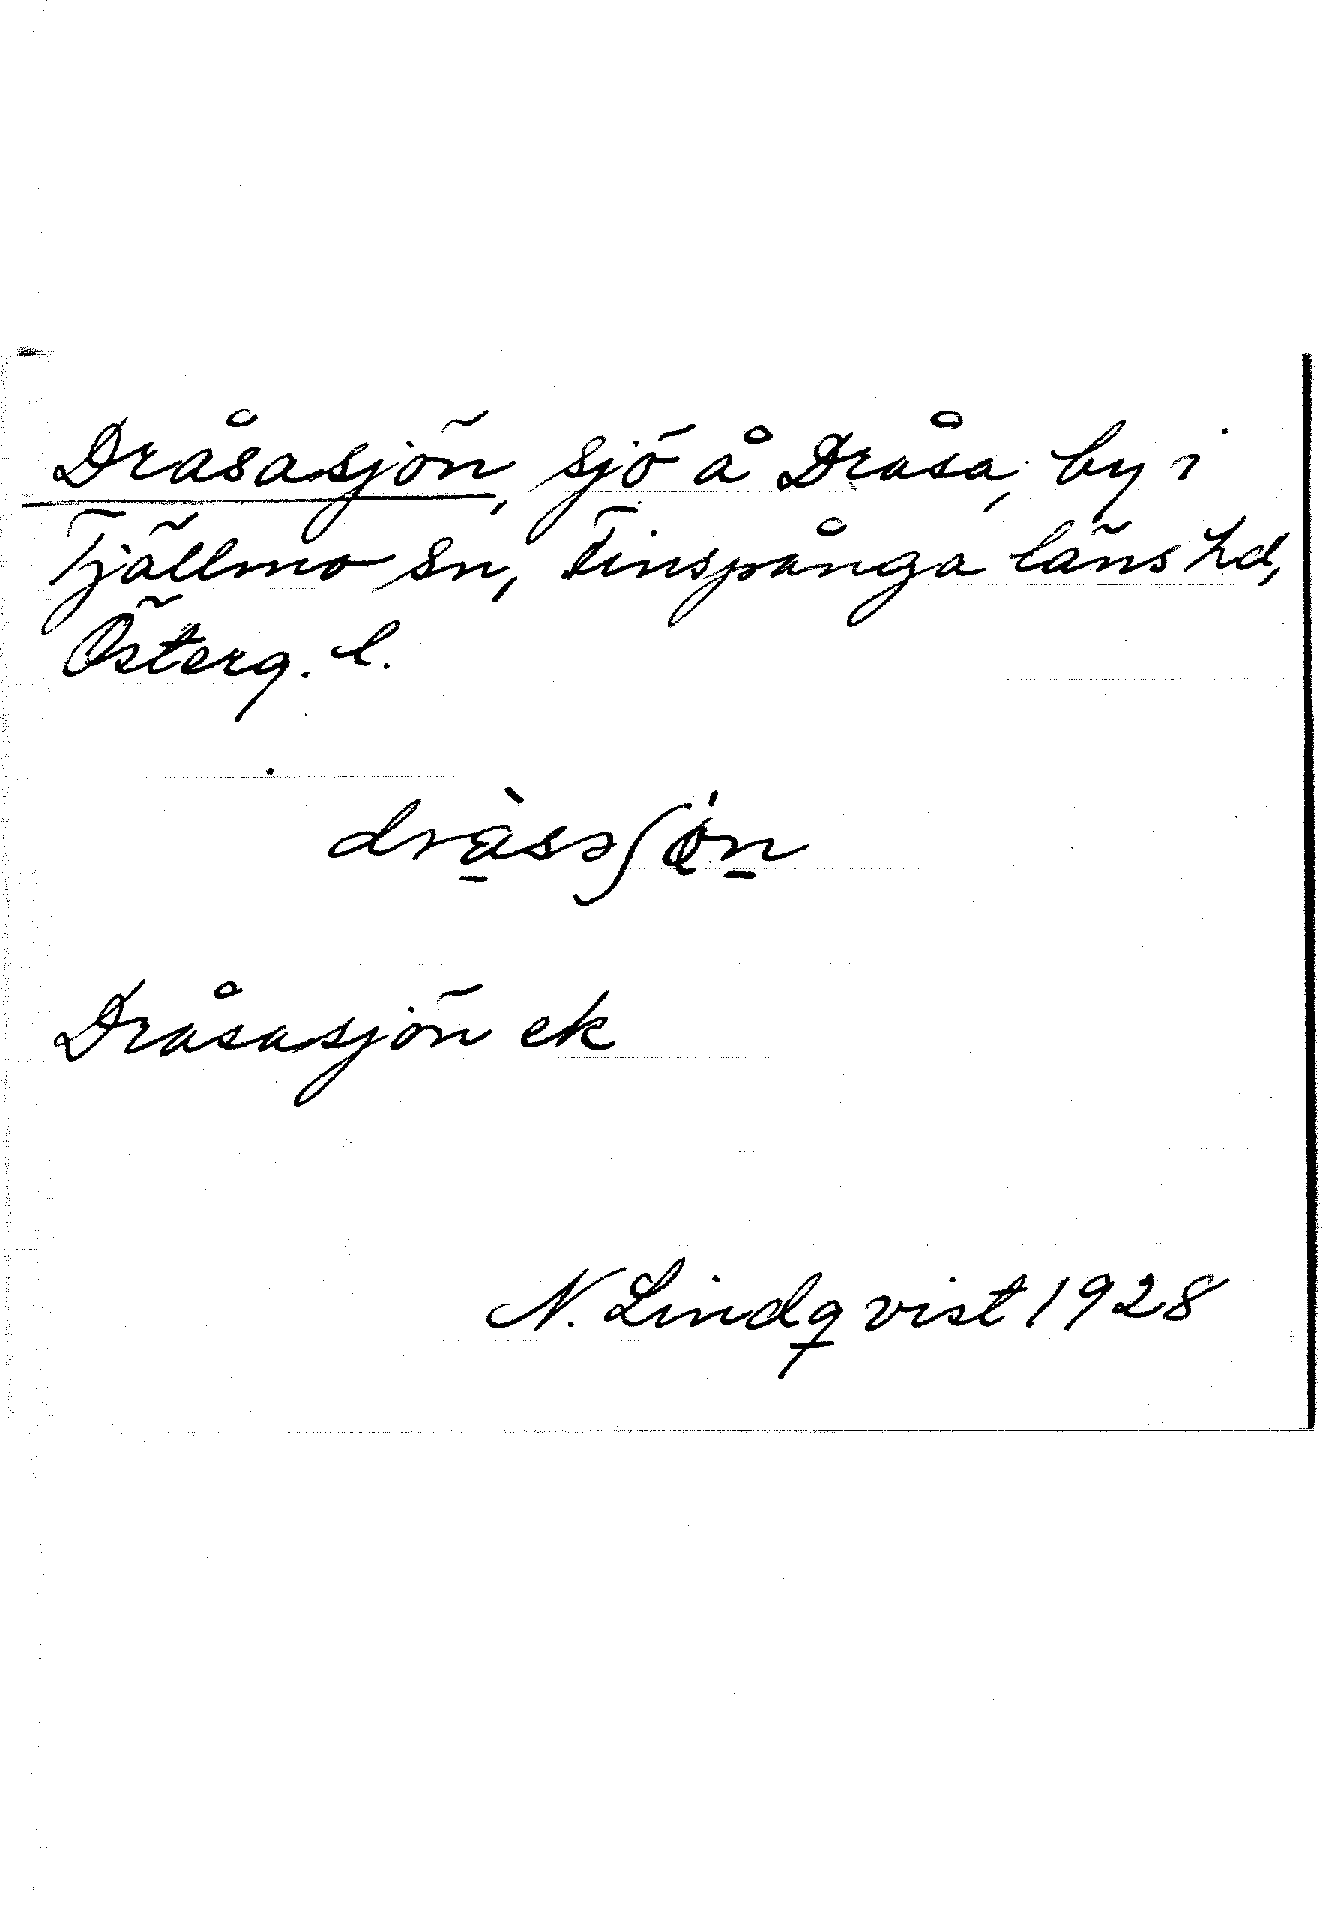 Dråsasjön, sjö å Dråsa, by i
Tjällmo sn, Finspånga läns hd,
Österg. l.
dràsəʃön
Dråsasjön ek
N. Lindqvist 1928